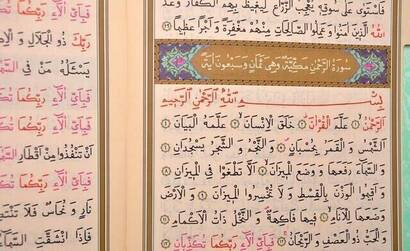 فَاسْتَوٰى عَلٰى سُوقِهِ يُعْجِبُ الزُّرَّاعَ لِيَغِيظَ بِهِمُ الْكُفَّارَ وَعَدَ
اللّٰهُ الَّذِينَ اٰمَنُوا وَعَمِلُوا الصَّالِحَاتِ مِنْهُمْ مَغْفِرَةً وَاَجْرًا عَظِيمًا ﴿٢٩﴾
سُورَةُ الرَّحْمٰنِ مَكِّيَّةٌ وَهِيَ ثَمَانٍ وَسَبْعُونَ اٰيَةً
بِسْمِ اللّٰهِ الرَّحْمٰنِ الرَّحِيمِ
اَلرَّحْمٰنُ ﴿١﴾ عَلَّمَ الْقُرْاٰنَ ﴿٢﴾ خَلَقَ الْاِنْسَانَ ﴿٣﴾ عَلَّمَهُ الْبَيَانَ ﴿٤﴾
اَلشَّمْسُ وَالْقَمَرُ بِحُسْبَانٍ ﴿٥﴾ وَالنَّجْمُ وَالشَّجَرُ يَسْجُدَانِ ﴿٦﴾
وَالسَّمَاءَ رَفَعَهَا وَوَضَعَ الْمِيزَانَ ﴿٧﴾ اَلَّا تَطْغَوْا فِي الْمِيزَانِ ﴿٨﴾
وَاَقِيمُوا الْوَزْنَ بِالْقِسْطِ وَلَا تُخْسِرُوا الْمِيزَانَ ﴿٩﴾ وَالْاَرْضَ
وَضَعَهَا لِلْاَنَامِ ﴿١٠﴾ فِيهَا فَاكِهَةٌ وَالنَّخْلُ ذَاتُ الْاَكْمَامِ ﴿١١﴾
وَالْحَبُّ ذُو الْعَصْفِ وَالرَّيْحَانُ ﴿١٢﴾ فَبِاَيِّ اٰلَاءِ رَبِّكُمَا تُكَذِّبَانِ ﴿١٣﴾
فَبِاَيِّ اٰلَاءِ رَبِّكُمَا
رَبِّكَ ذُو الْجَلَالِ
يَسْـَٔلُهُ مَنْ فِي
فَبِاَيِّ اٰلَاءِ رَبِّكُمَا
فَبِاَيِّ اٰلَاءِ رَبِّكُمَا
اَنْ تَنْفُذُوا مِنْ اَقْطَارِ
فَبِاَيِّ اٰلَاءِ رَبِّكُمَا
نَارٍ وَنُحَاسٌ فَلَا
فَبِاَيِّ اٰلَاءِ رَبِّكُمَا
فَاِذَا انْشَقَّتِ